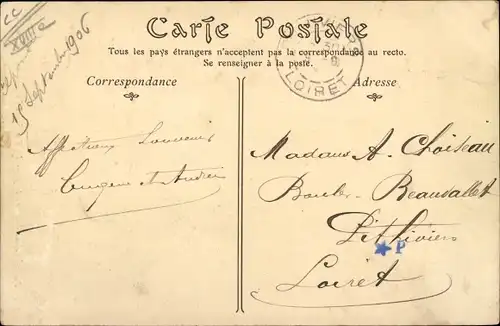 CC
XVIIIe
15 Septembre 1906
Carte Postale
Tous les pays étrangers n'acceptent pas la correspondance au recto.
Se renseigner à la poste.
Correspondance
Adresse
LOIRET
Affectueux Souvenir
Eugène et Andrée
Madame A. Choiseau
Boul. Beauvallet
Pithiviers
P
Loiret